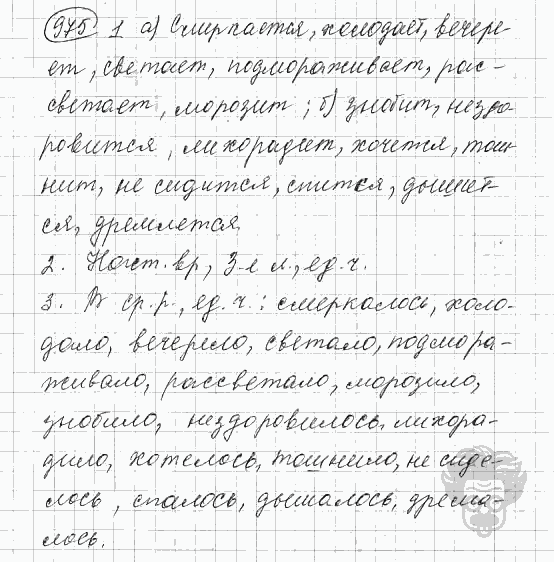 975 1 а) Смеркается, холодает, вечере-
ет, светает, подмораживает, рас-
светает, морозит; б) знобит, нездо
ровится, лихорадит, хочется, тош-
нит, не сидится, спится, дышит-
ся, дремлется
2. Наст. вр, 3-е л., ед. ч.
3. В ср. р., ед. ч.: смеркалось, холо-
дало, вечерело, светало, подмора-
живало, рассветало, морозило,
знобило, нездоровилось, лихора-
дило, хотелось, тошнило, не сиде-
лось, спалось, дышалось, дрема-
лось.